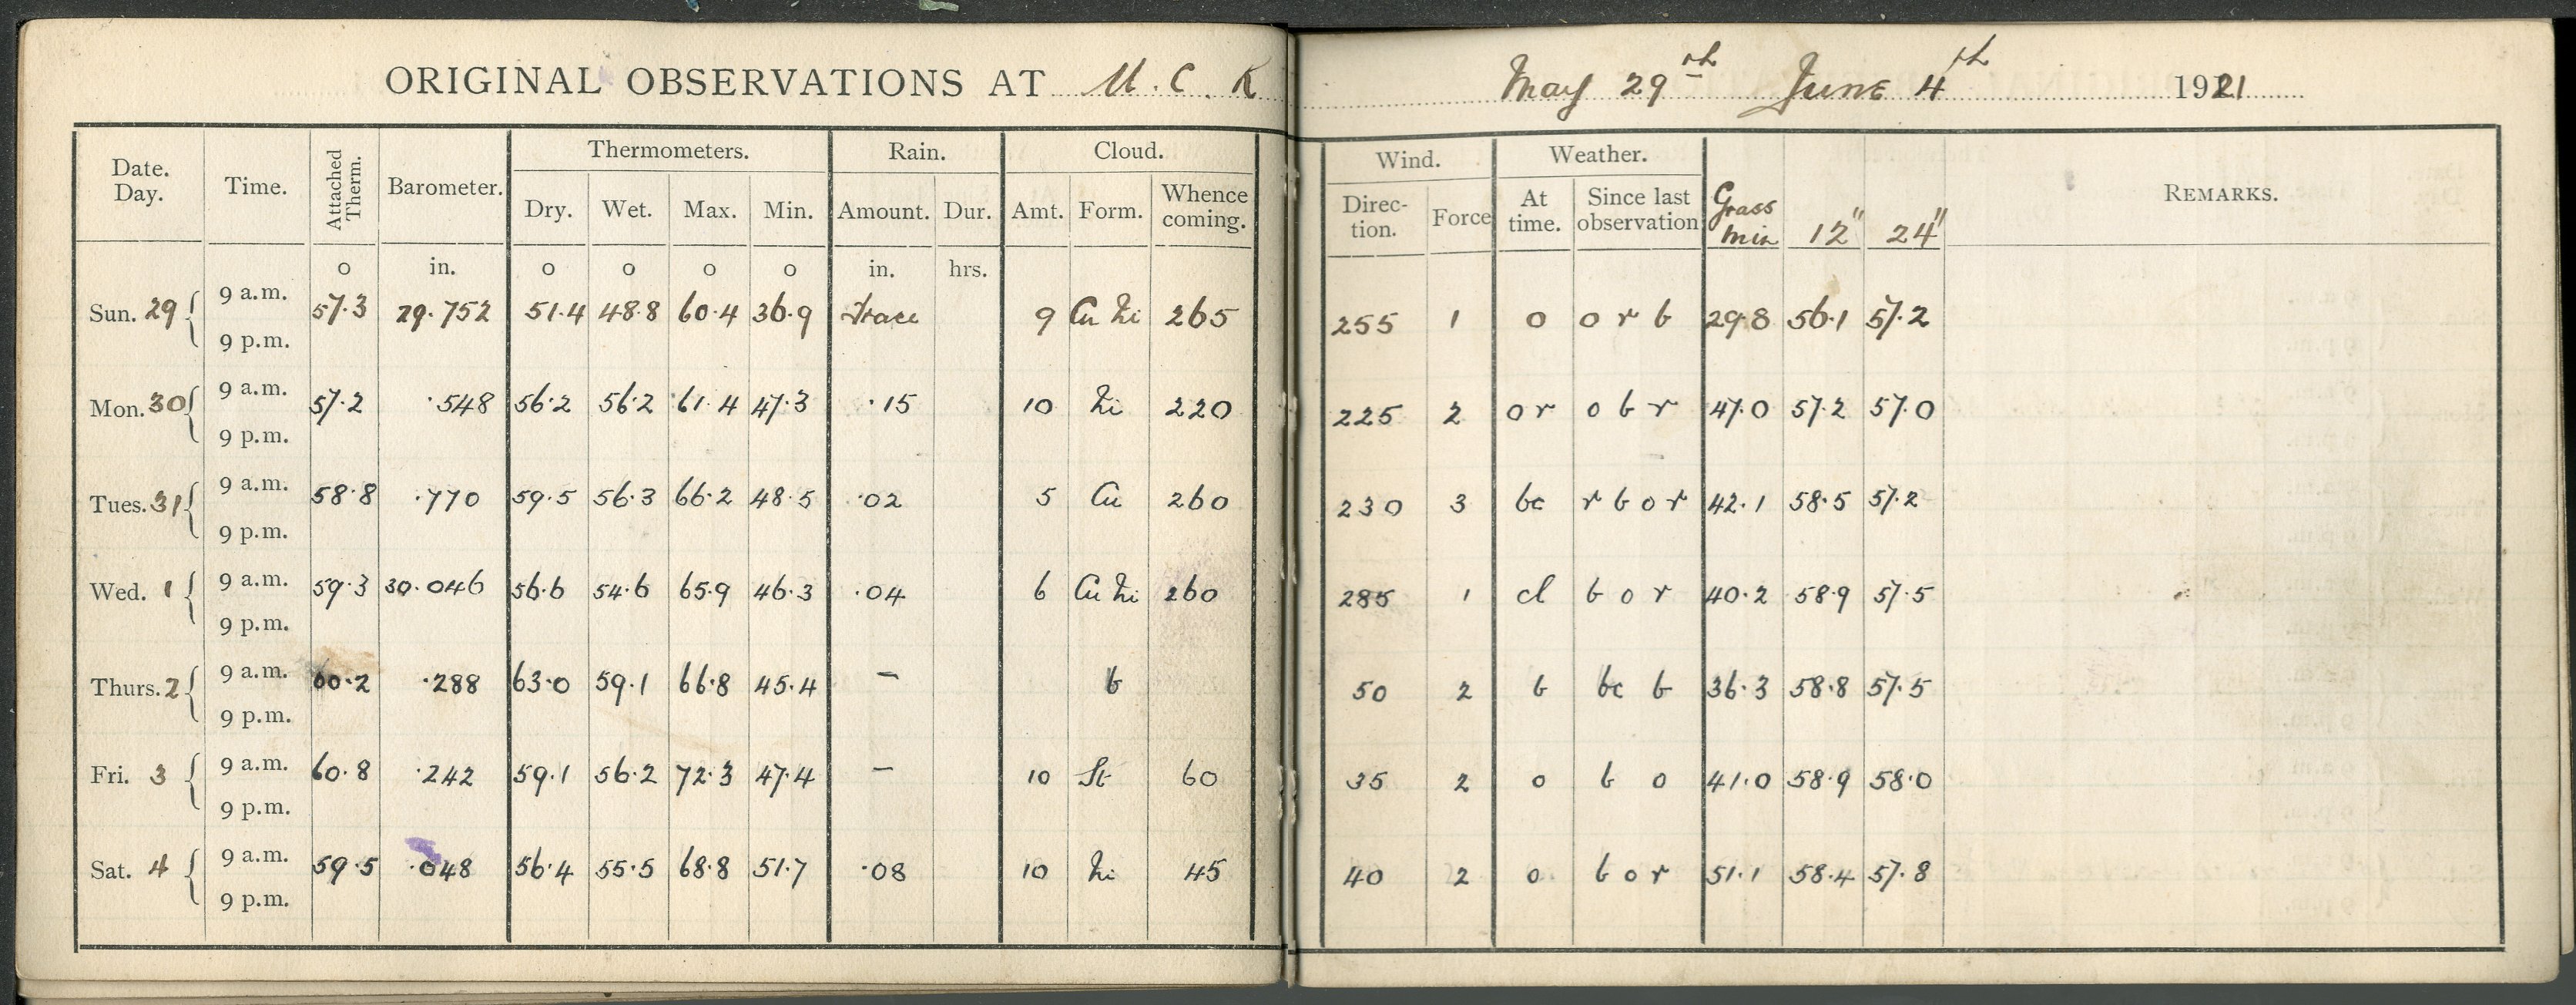 ORIGINAL OBSERVATIONS AT U. C. R May 29th June 4th 1921
Date. Day. Time. Attached Therm. Barometer. Thermometers. Rain. Cloud. Wind. Weather. REMARKS.
Dry. Wet. Max. Min. Amount. Dur. Amt. Form. Whence coming. Direc-tion. Force At time. Since last observation Grass min 12" 24"
o in. o o o o in. hrs.
Sun. 29 { 9 a.m. 57.3 29.752 51.4 48.8 60.4 36.9 Trace 9 Cu Ni 265 255 1 o o r b 29.8 56.1 57.2
9 p.m.
Mon. 30 { 9 a.m. 57.2 .548 56.2 56.2 61.4 47.3 .15 10 Ni 220 225 2 or o b r 47.0 57.2 57.0
9 p.m.
Tues. 31 { 9 a.m. 58.8 .770 59.5 56.3 66.2 48.5 .02 5 Cu 260 230 3 bc r b o r 42.1 58.5 57.2
9 p.m.
Wed. 1 { 9 a.m. 59.3 30.046 56.6 54.6 65.9 46.3 .04 6 Cu Ni 260 285 1 cl b o r 40.2 58.9 57.5
9 p.m.
Thurs. 2 { 9 a.m. 60.2 .288 63.0 59.1 66.8 45.4 — b 50 2 b bc b 36.3 58.8 57.5
9 p.m.
Fri. 3 { 9 a.m. 60.8 .242 59.1 56.2 72.3 47.4 — 10 St 60 35 2 o b o 41.0 58.9 58.0
9 p.m.
Sat. 4 { 9 a.m. 59.5 .048 56.4 55.5 68.8 51.7 .08 10 Ni 45 40 2 o b o r 51.1 58.4 57.8
9 p.m.